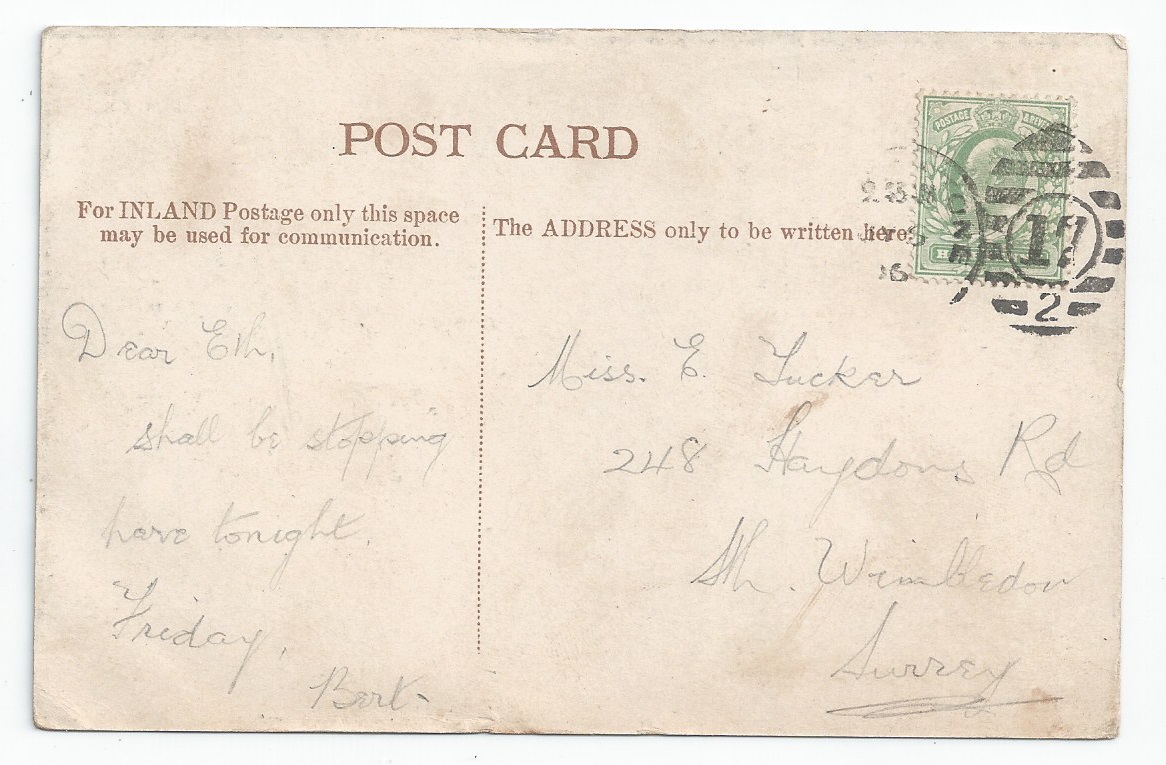 POST CARD
For INLAND Postage only this space
may be used for communication.
The ADDRESS only to be written here.
POSTAGE
2
Dear Eth,
shall be stopping
here tonight.
Friday,
Bert-
Miss. E. Tucker
248 Haydons Rd
Sth. Wimbledon
Surrey